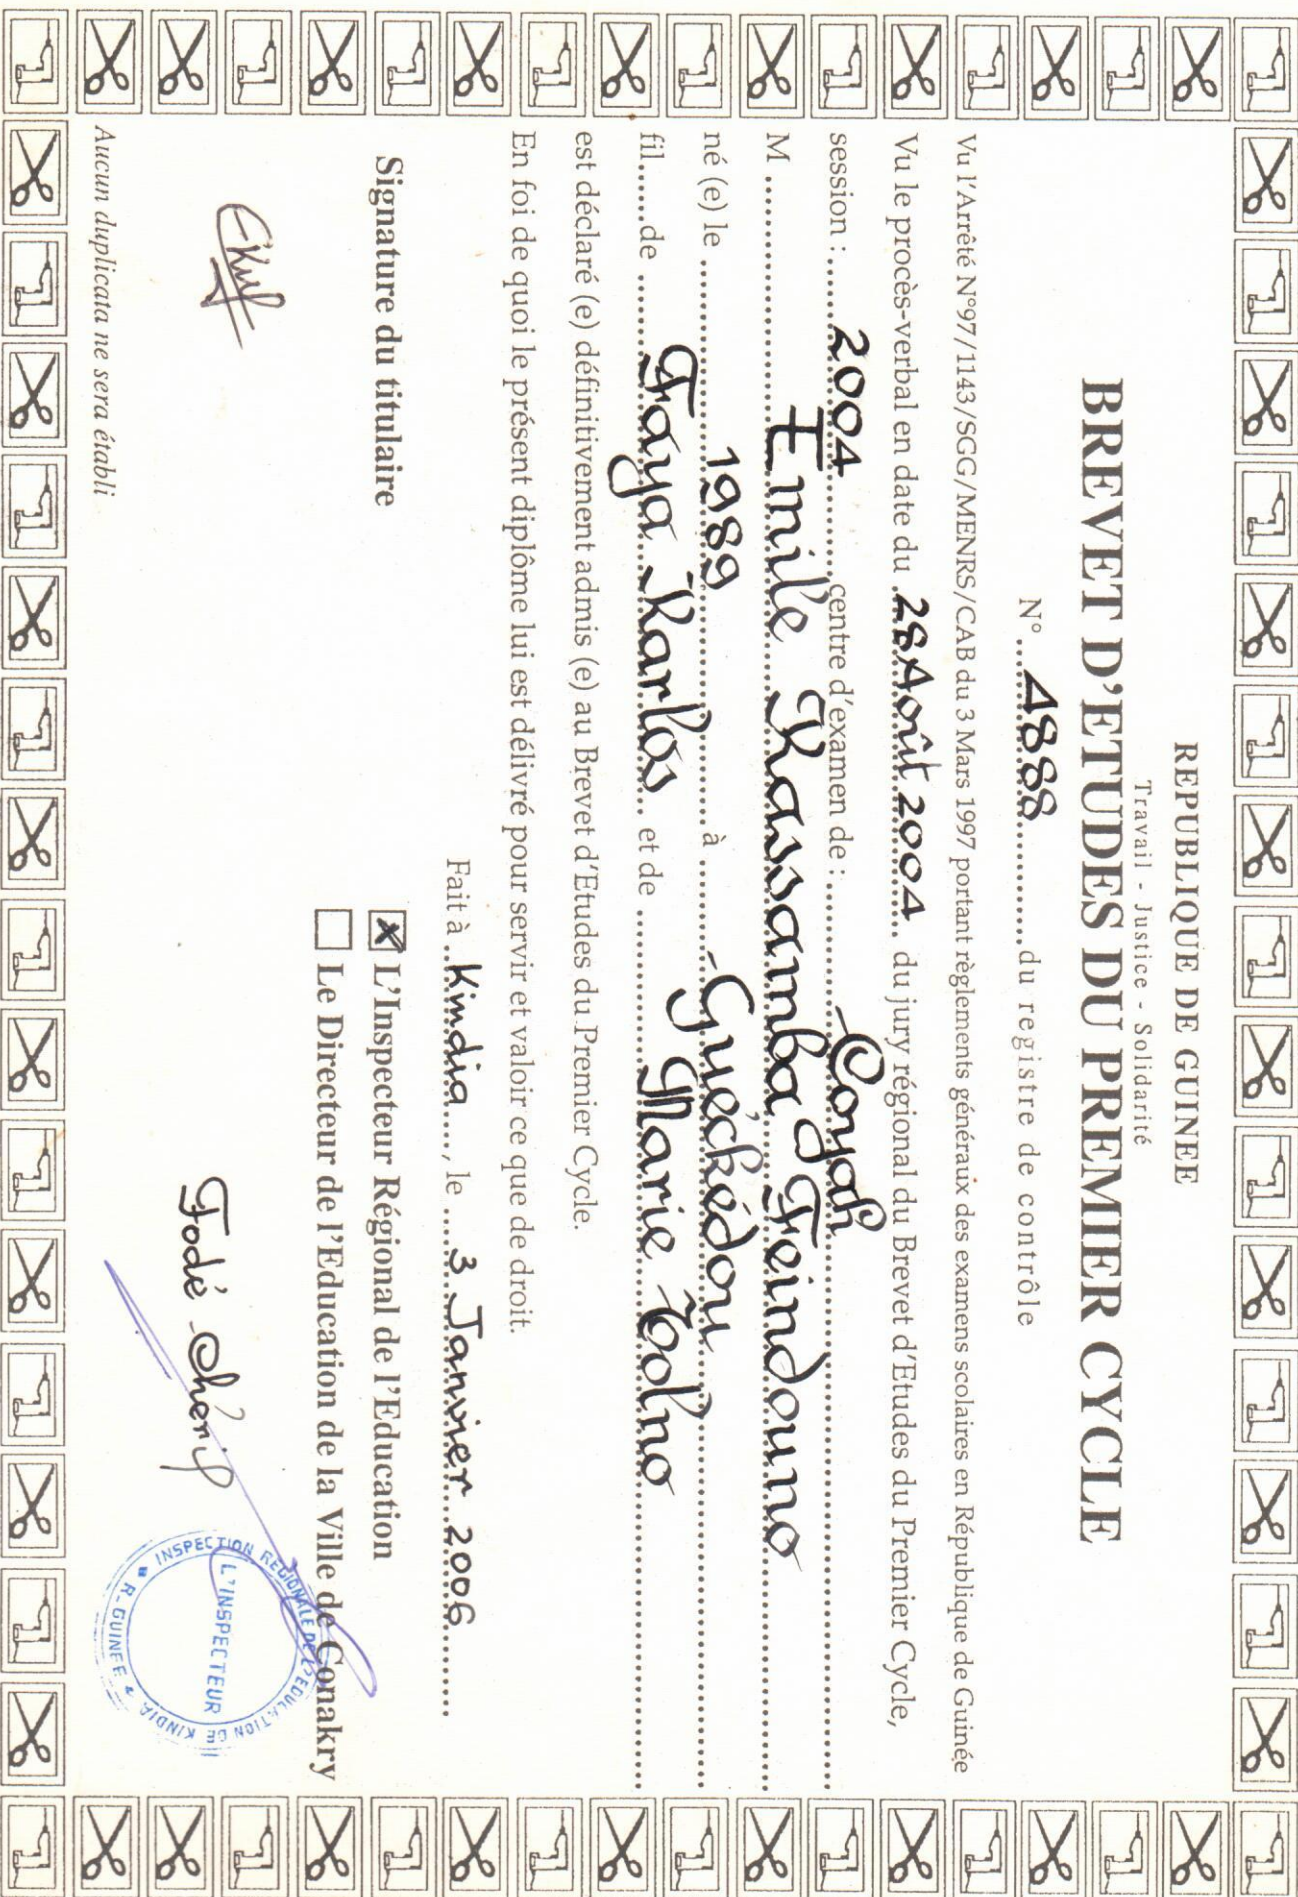 REPUBLIQUE DE GUINEE
Travail - Justice - Solidarité
BREVET D'ETUDES DU PREMIER CYCLE
N° ....4888............du registre de contrôle
Vu l'Arrêté N°97/1143/SGG/MENRS/CAB du 3 Mars 1997 portant règlements généraux des examens scolaires en République de Guinée
Vu le procès-verbal en date du .28 Août 2004. du jury régional du Brevet d'Etudes du Premier Cycle,
session :......2004............centre d'examen de :............Coyah............
M ............Emile Kassamba Feindouno............
né (e) le ............1989............ à ............Guéckédou............
fil......de ......Faya Karlos...... et de ......Marie Tolno............
est déclaré (e) définitivement admis (e) au Brevet d'Etudes du Premier Cycle.
En foi de quoi le présent diplôme lui est délivré pour servir et valoir ce que de droit.
Fait à ..Kindia...., le ....3 Janvier 2006..........
Signature du titulaire
X L'Inspecteur Régional de l'Education
Le Directeur de l'Education de la Ville de Conakry
Fodé Chérif
INSPECTION REGIONALE DE L'EDUCATION DE KINDIA
L'INSPECTEUR
R - GUINEE
Aucun duplicata ne sera établi